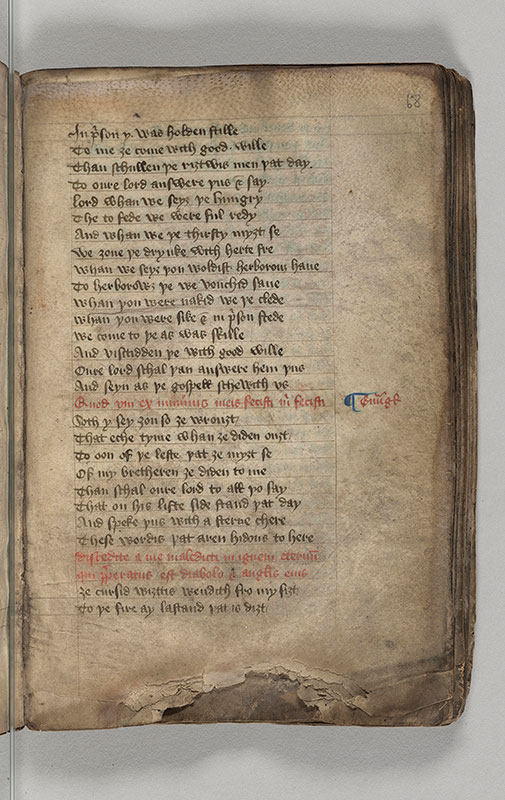 68
In p̃son y was holden stille
To me ȝe come with good wille
Than schullen þe riȝtwis men þat day
To oure lord answere þus & say
Lord whan we seyȝ þe hungry
The to fede we were ful redy
And whan we þe thirsty myȝt se
We ȝoue þe drynke with herte fre
Whan we seyȝ þou woldist herborow haue
To herborowȝ þe we vouchid saue
Whan þou were nakid we þe clede
Whan þou were sike & in p̃son stede
We come to þe as was skille
And visitidden þe with good wille
Oure lord schal þan answere hem þus
And seyn as þe gospell schewith vs
Quod vni ex minimis meis fecisti m̃ fecisti
Soth y sey ȝou so ȝe wrouȝt
That eche tyme whan ȝe diden ouȝt
To oon of þe leste þat ȝe myȝt se
Of my bretheren ȝe diden to me
Than schal oure lord to all þo say
That on his lifte side stand þat day
And speke þus with a sterne chere
These wordis þat aren hidous to here
discedite a me maledicti in ignem eternũ
qui p̃paratus est diabolo & angl̃is eius
Ȝe cursid wiȝttis wendith fro my siȝt
To þe fire ay lastand þat is diȝt